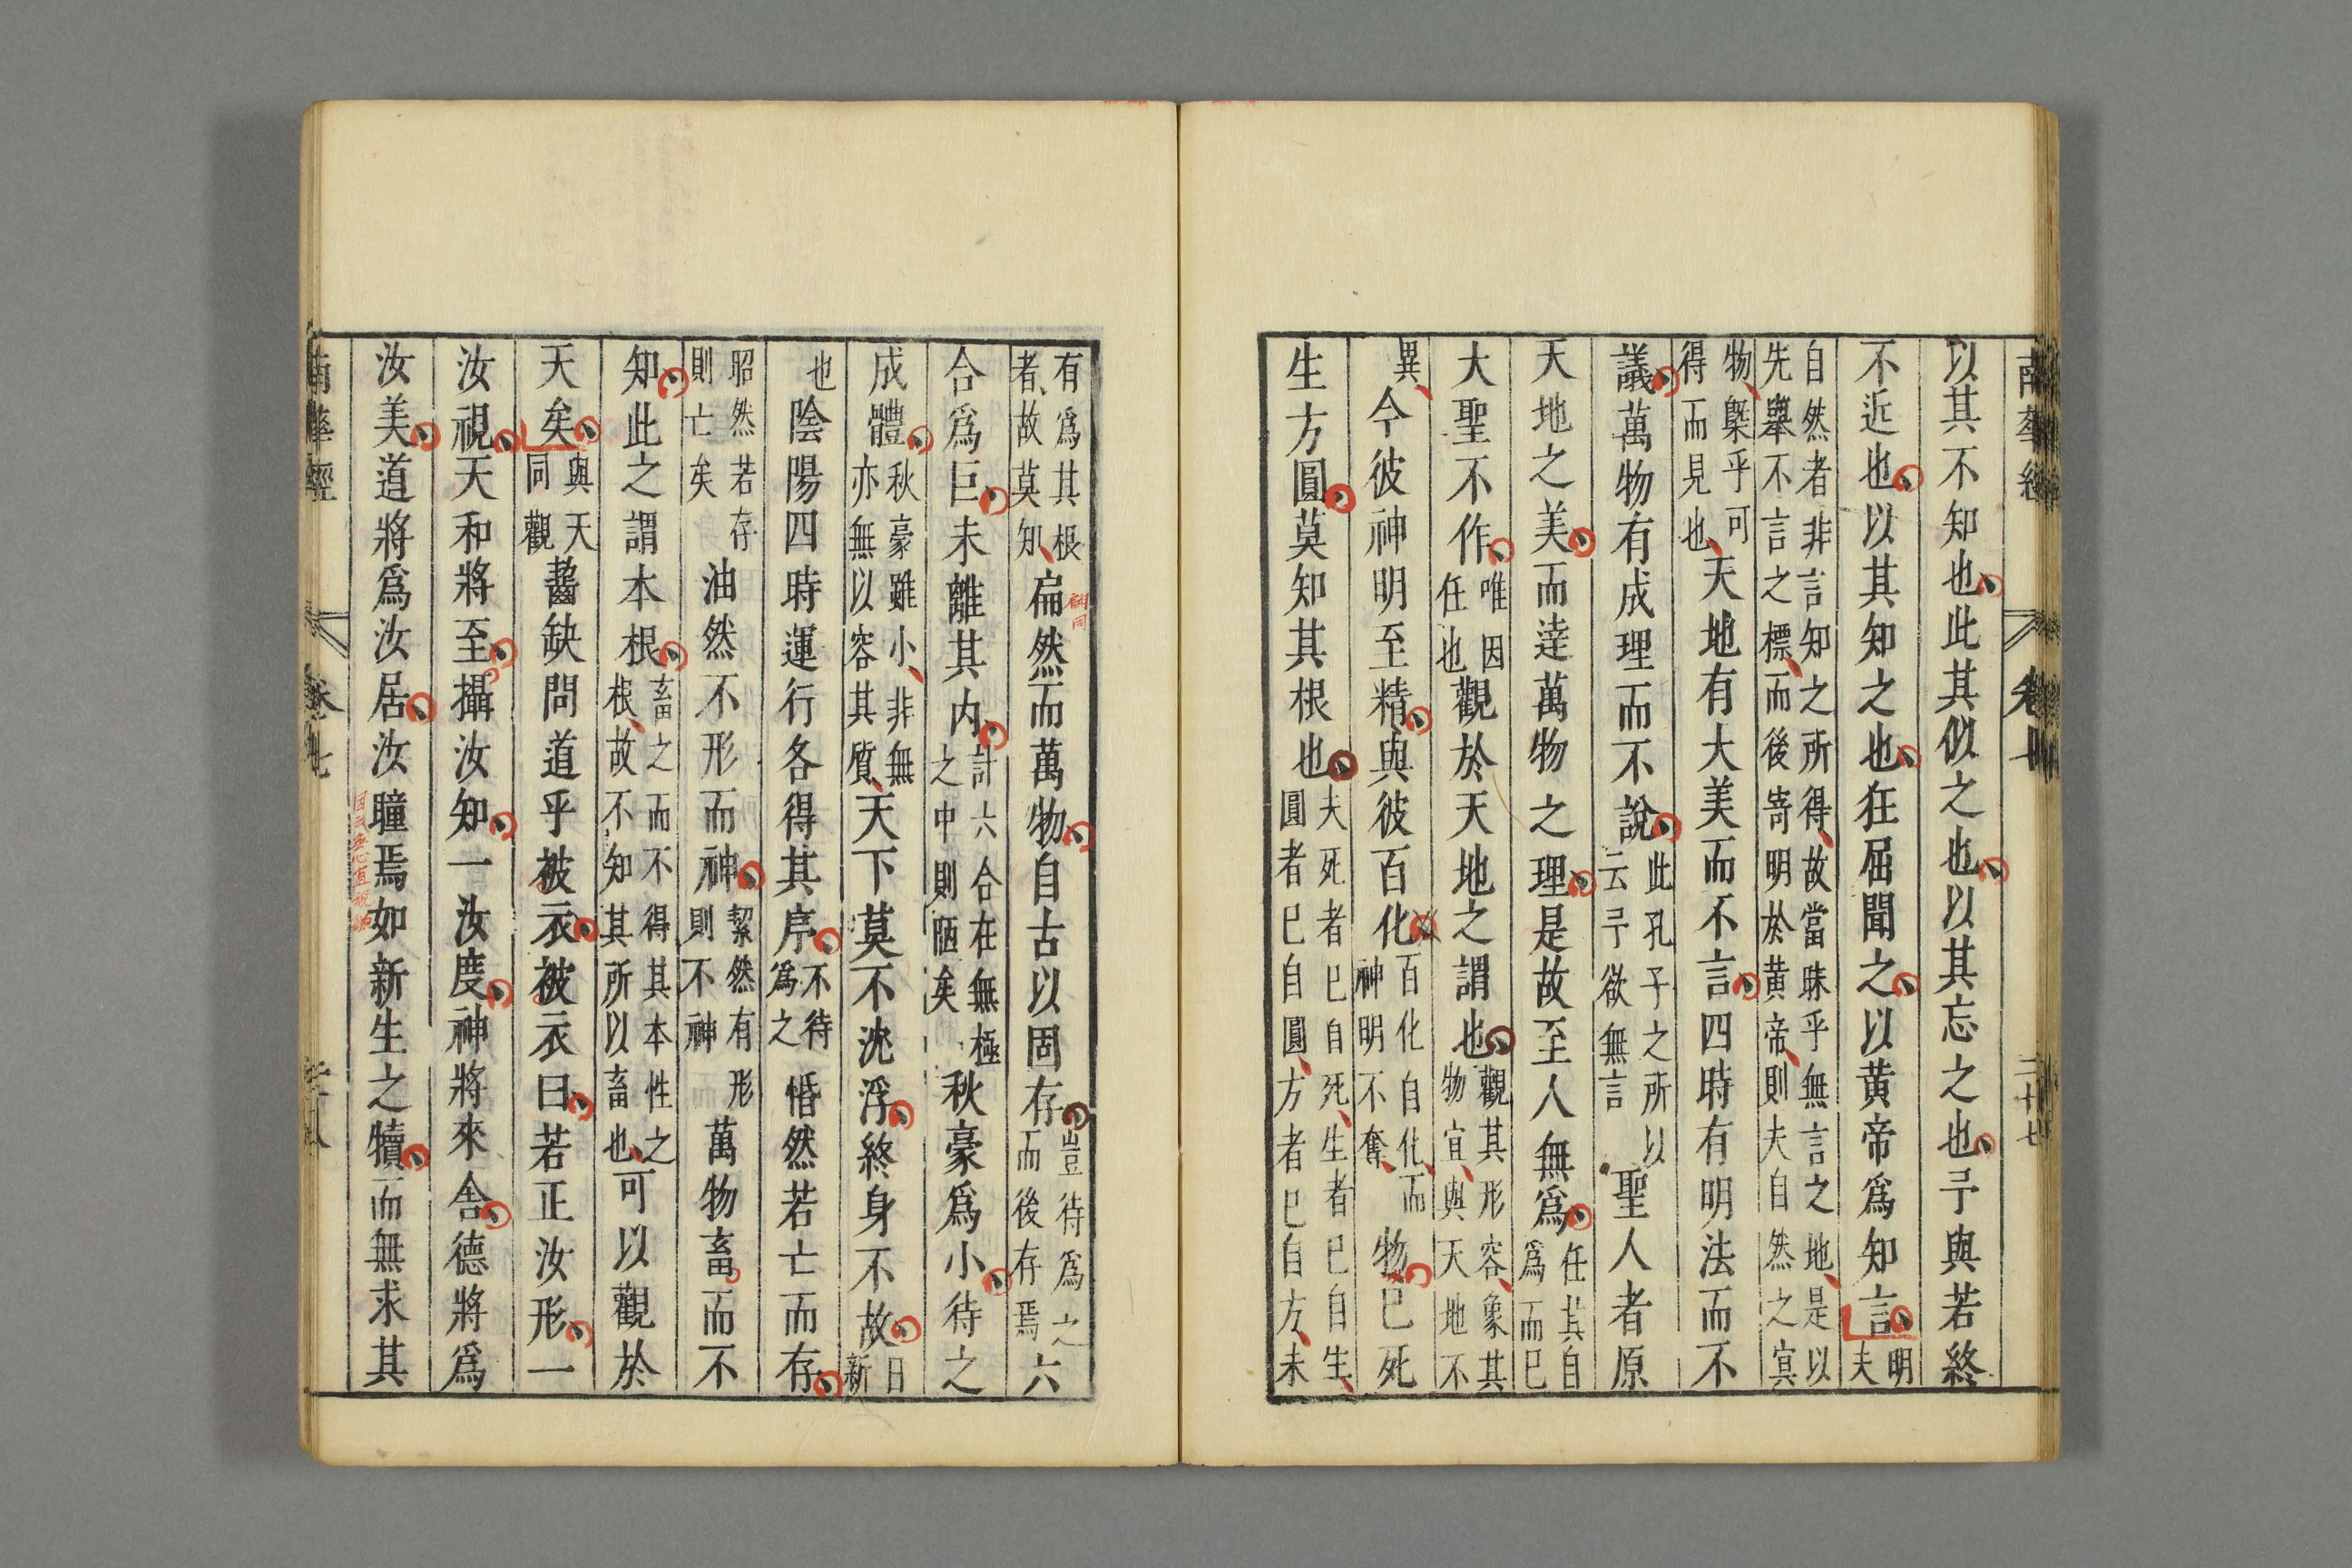 南華經 卷七 二十七
以其不知也此其似之也以其忘之也予與若終
不近也以其知之也狂屈聞之以黄帝爲知言明夫
自然者非言知之所得故當昧乎無言之地是以先舉不言之標而後寄明於黄帝則夫自然之冥
物槩乎可得而見也天地有大美而不言四時有明法而不
議萬物有成理而不說此孔子之所以云予欲無言聖人者原
天地之美而逹萬物之理是故至人無爲任其自爲而已
大聖不作唯因任也觀於天地之謂也觀其形容象其物宜與天地不
異今彼神明至精與彼百化百化自化而神明不奪物已死
生方圓莫知其根也夫死者已自死生者已自生圓者已自圓方者已自方未
有爲其根者故莫知扁然而萬物自古以固存豈待爲之而後存焉六
翩同
合爲巨未離其内計六合在無極之中則陋矣秋豪爲小待之
成體秋豪雖小非無亦無以容其質天下莫不沈浮終身不故日新
也陰陽四時運行各得其序不待爲之惛然若亡而存
昭然若存則亡矣油然不形而神絜然有形則不神萬物畜而不
知此之謂本根畜之而不得其本性之根故不知其所以畜也可以觀於
天矣與天同觀齧缺問道乎被衣被衣曰若正汝形一
汝視天和將至攝汝知一汝度神將來舍德將爲
汝美道將爲汝居汝瞳焉如新生之犢而無求其
南華經 卷七 二十八